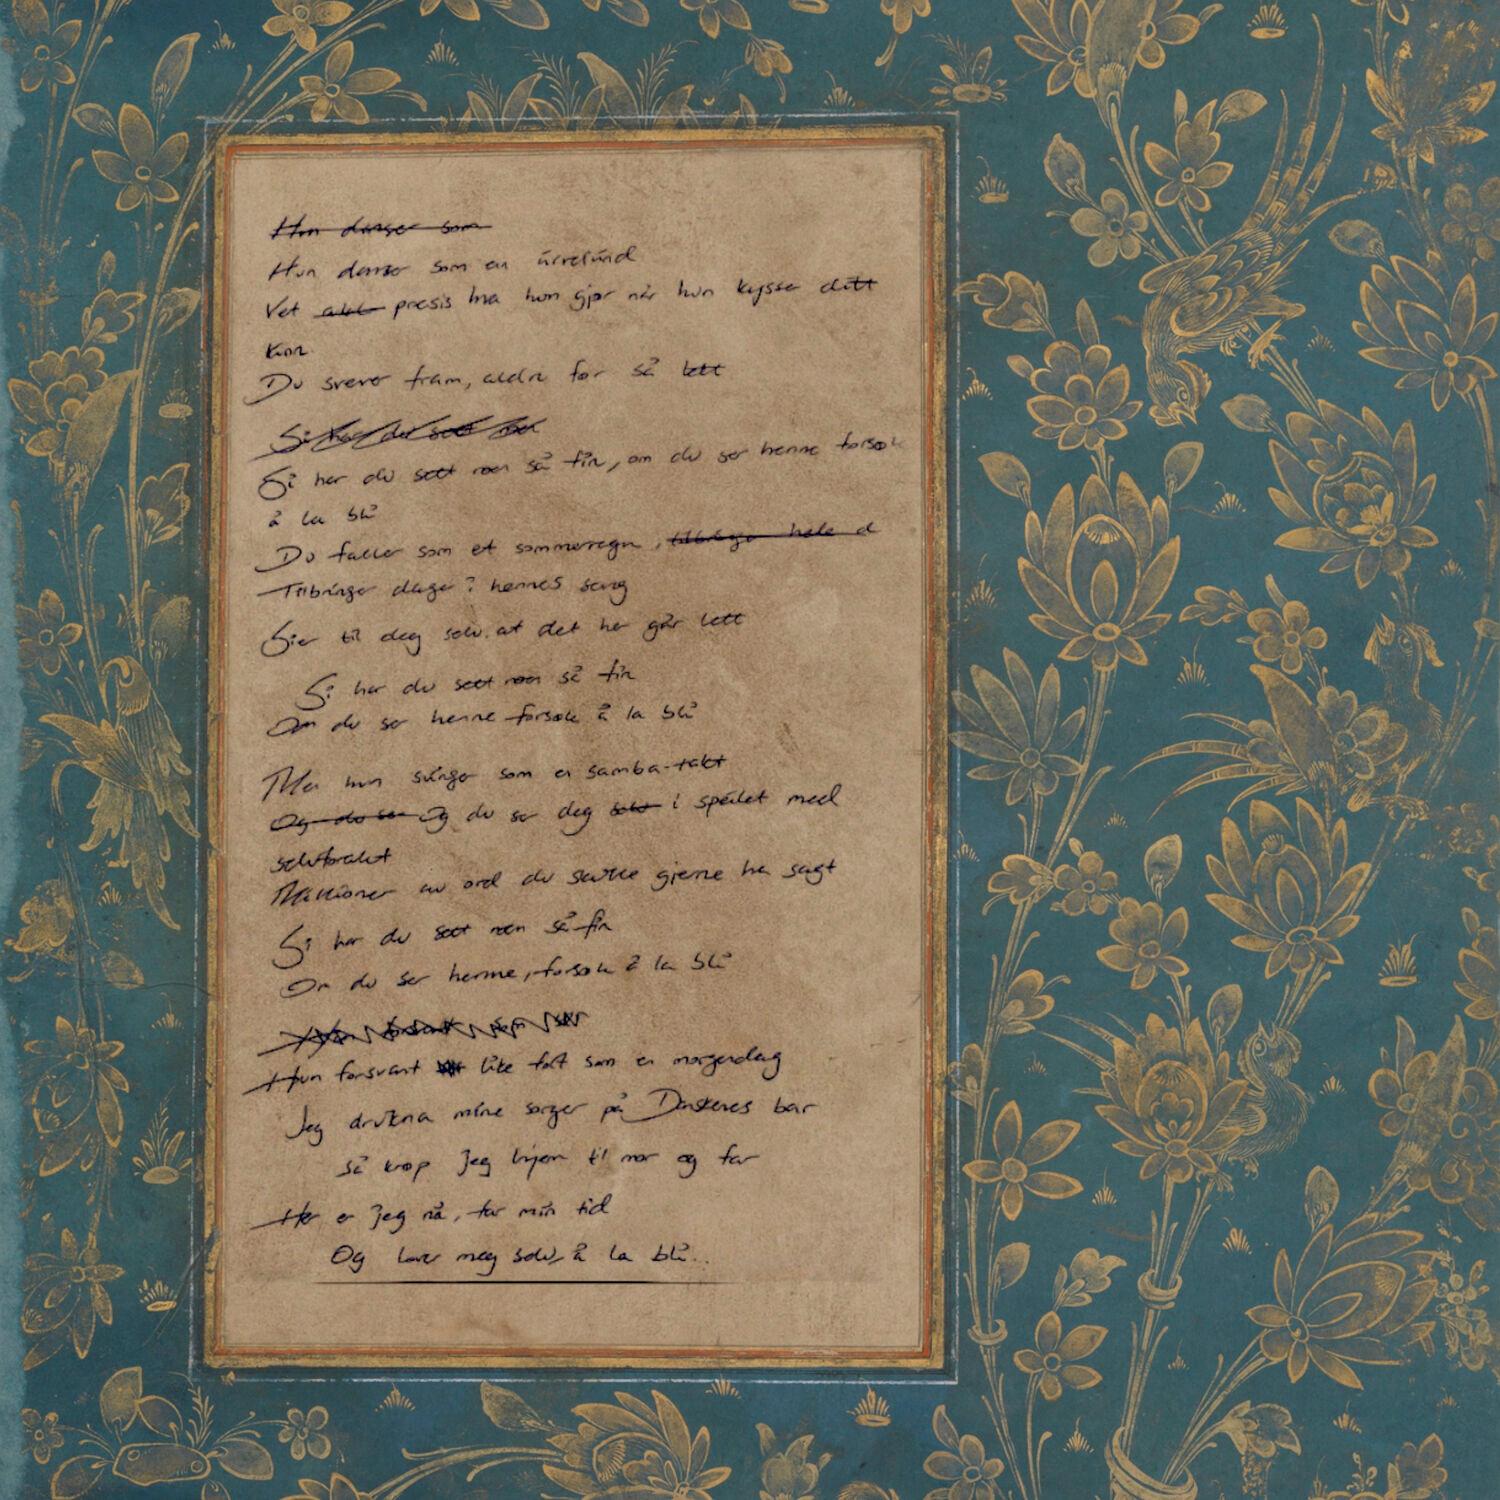 Hun danser som
Hun danser som en virvelvind
Vet alt presis hva hun gjør når hun kysser ditt
kinn
Du svever fram, aldri før så lett
Si har du sett noen
Si har du sett noen så fin, om du ser henne forsøk
å la bli
Du faller som et sommerregn, tilbringe hele d
Tilbringer dager i hennes seng
Sier til deg selv at det her går lett
Si har du sett noen så fin
Om du ser henne forsøk å la bli
Men hun svinger som en samba-takt
Og du ser Og du ser deg selv i speilet med
selvforakt
Millioner av ord du skulle gjerne ha sagt
Si har du sett noen så fin
Om du ser henne, forsøk å la bli
Hun forsvant
Hun forsvant like fort som en morgendag
Jeg drukna mine sorger på Danskenes bar
Så krøp jeg hjem til mor og far
Her er jeg nå, tar min tid
Og lover meg selv, å la bli..